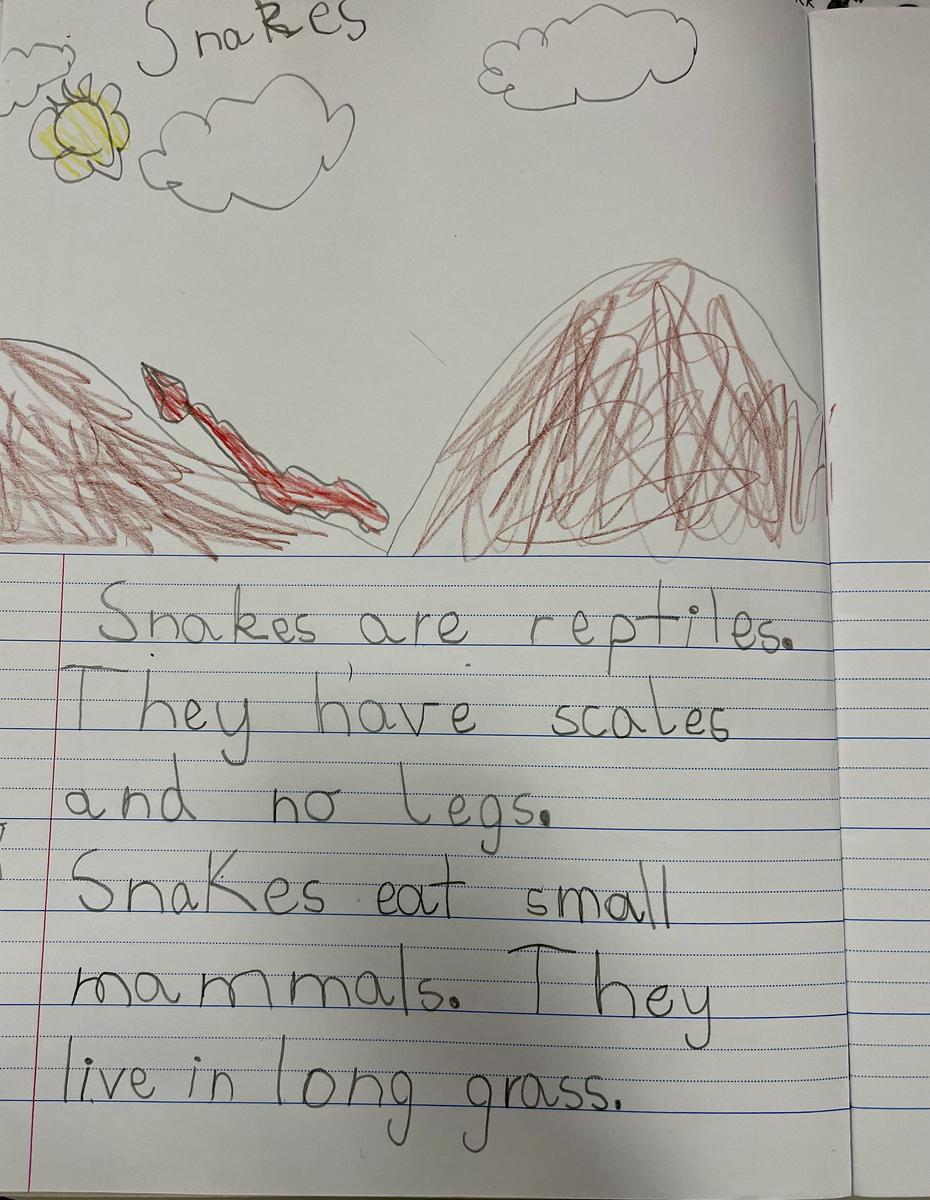 Snakes
Snakes are reptiles.
They have scales
and no legs.
Snakes eat small
mammals. They
live in long grass.